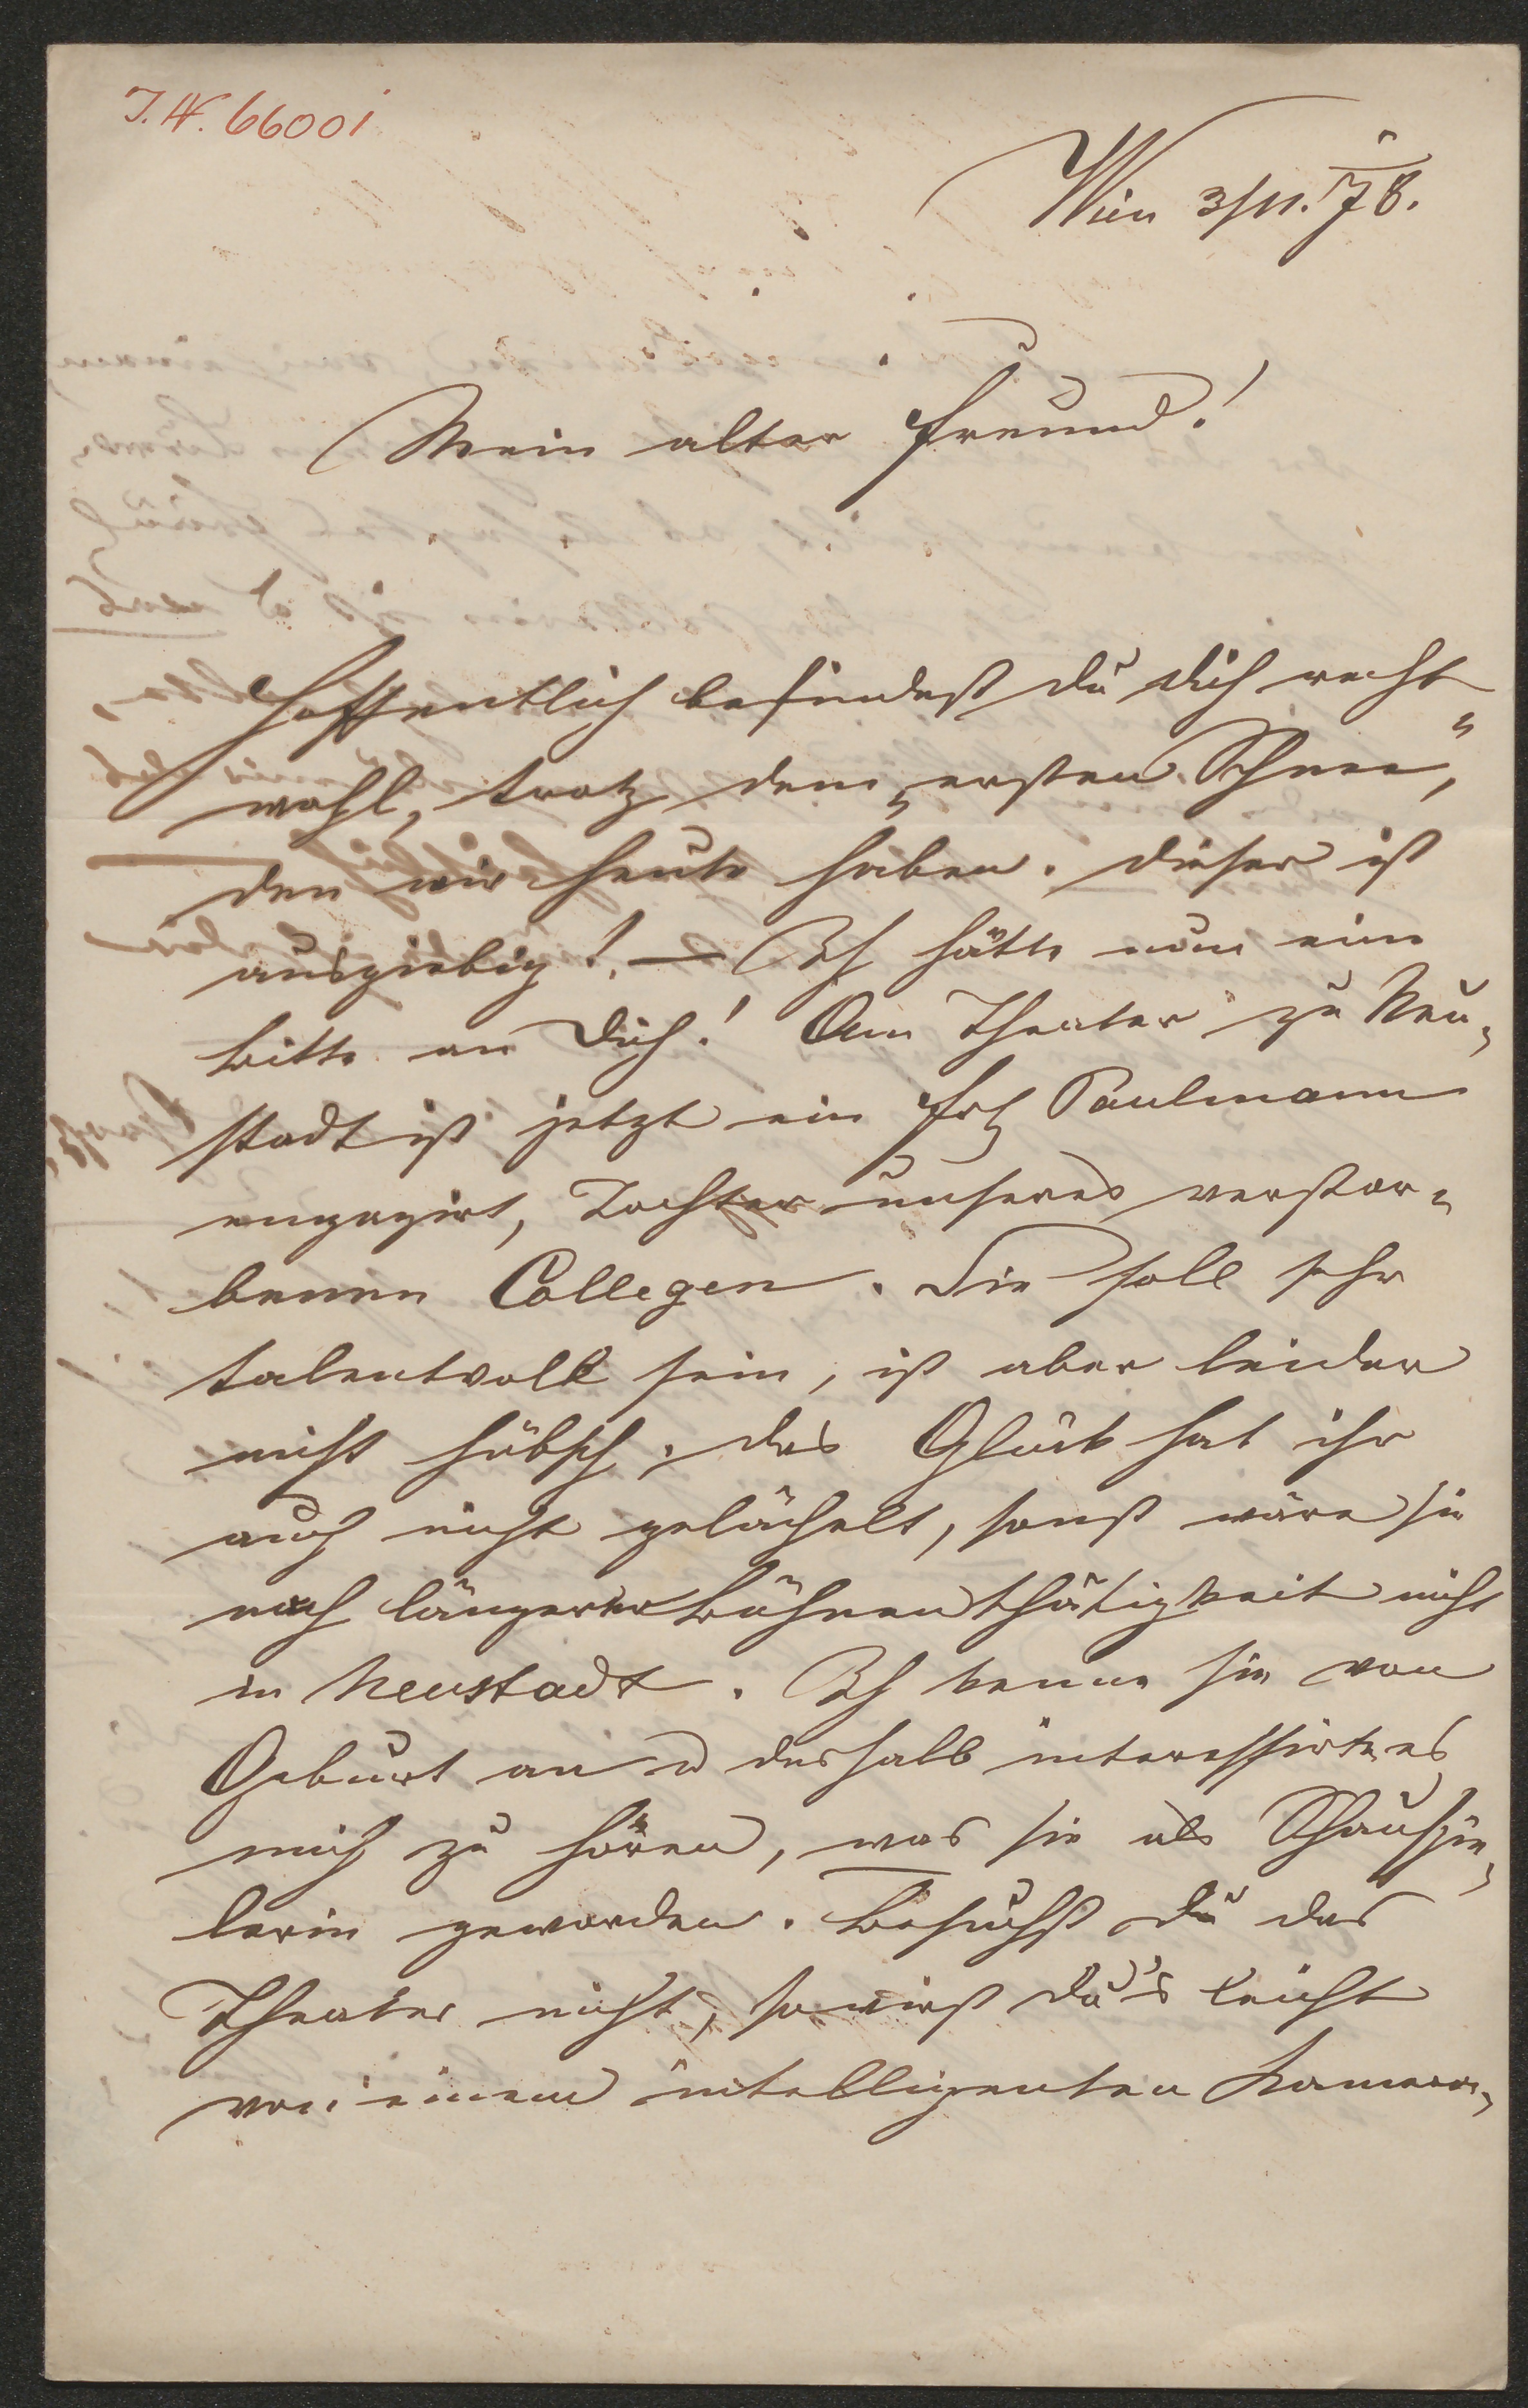 I.N. 66001
Wien 3/11. 78.
Mein alter Freund!
Hoffentlich befindest du dich recht
wohl, trotz dem „ersten Schnee“,
den wir heute haben. Dieser ist
ausgiebig! — Ich hätte nun eine
Bitte an Dich! Am Theater zu Neu-
stadt ist jetzt ein Frl Paulmann
engagirt, Tochter unseres verstor-
benen Collegen. Sie soll sehr
talentvoll sein, ist aber leider
nicht hübsch. Das Glück hat ihr
auch nicht gelächelt, sonst wäre sie
nach längerer Bühnenthätigkeit nicht
in Neustadt. Ich kenne sie von
Geburt an u deshalb interessirte es
mich zu hören, was sie als Schauspie-
lerin geworden. Besuchst du das
Theater nicht, so wirst du's leicht
von einem intelligenten Kamera-